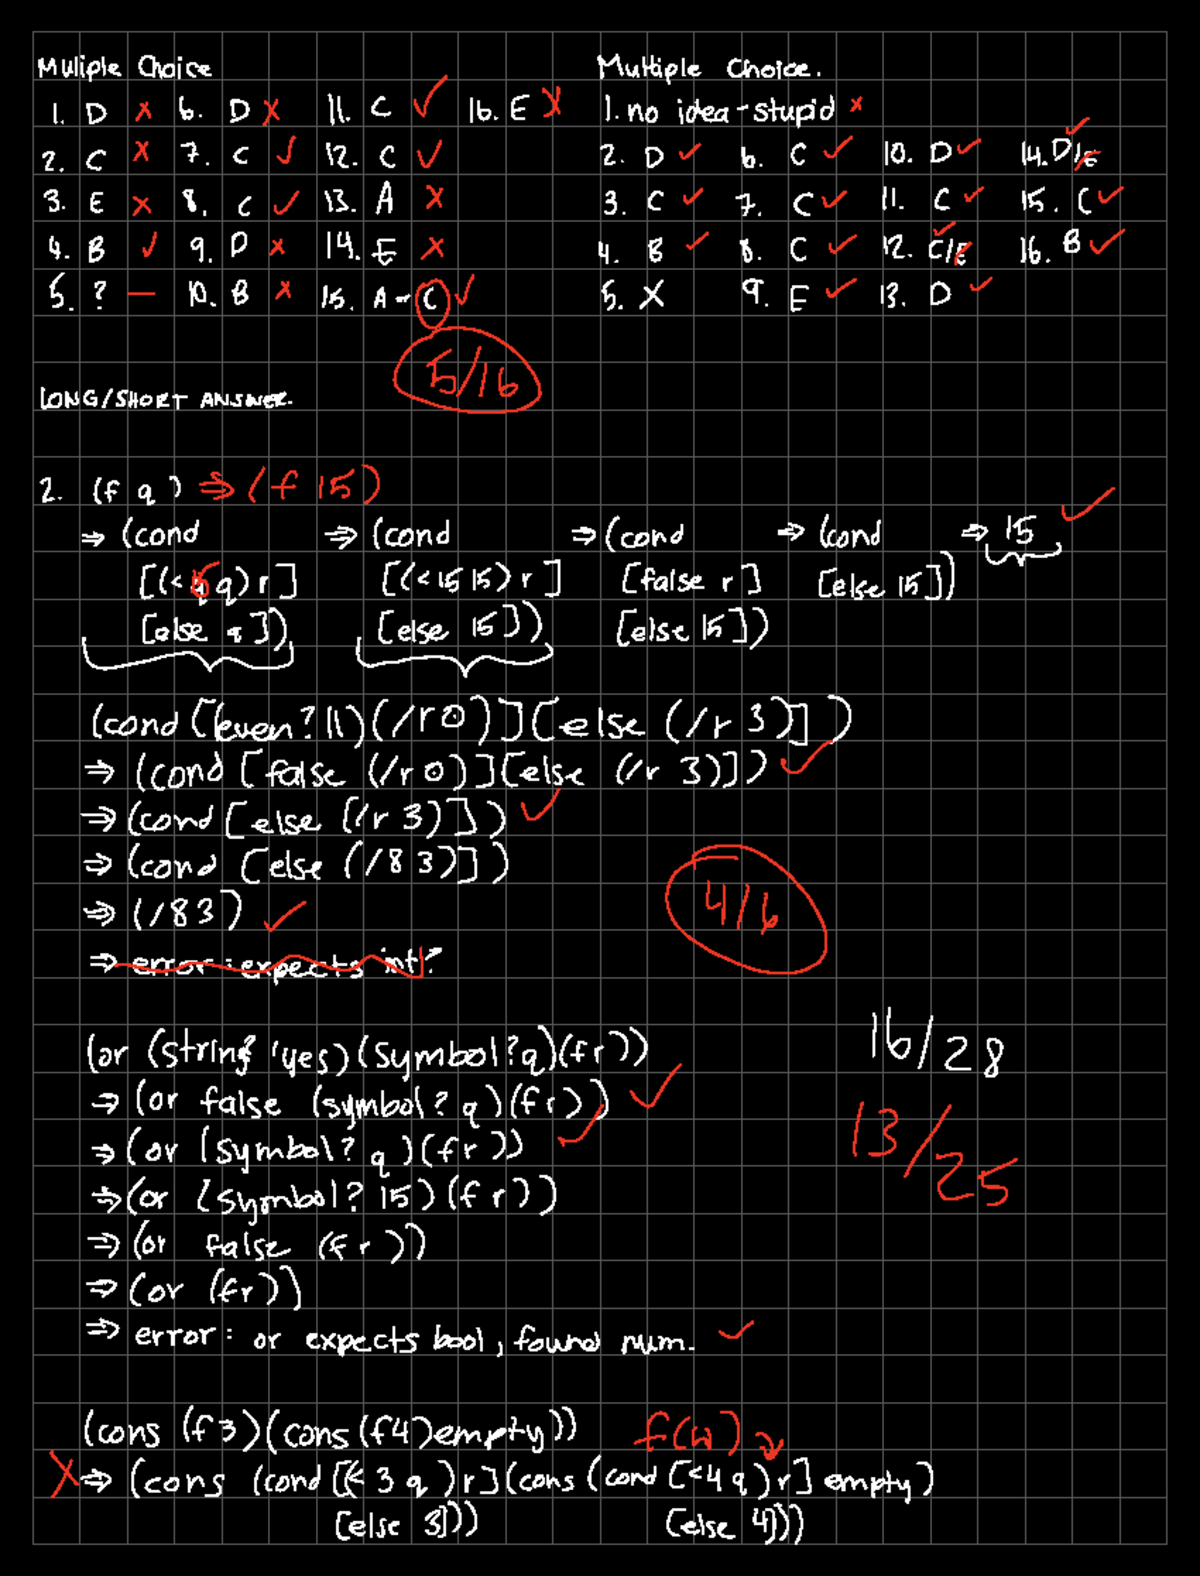 Muliple Choice
1. D ✗ 6. D ✗ 11. C ✓ 16. E ✗
2. C ✗ 7. C ✓ 12. C ✓
3. E ✗ 8. C ✓ 13. A ✗
4. B ✓ 9. D ✗ 14. E ✗
5. ? — 10. B ✗ 15. A - C ✓
5/16
Multiple Choice.
1. no idea - stupid ✗
2. D ✓ 6. C ✓ 10. D ✓ 14. D/E ✓
3. C ✓ 7. C ✓ 11. C ✓ 15. C ✓
4. B ✓ 8. C ✓ 12. C/E ✓ 16. B ✓
5. X 9. E ✓ 13. D ✓
LONG/SHORT ANSWER.
2. (f q) ⇒ (f 15)
⇒ (cond ⇒ (cond ⇒ (cond ⇒ (cond ⇒ 15 ✓
[(< 15 q) r] [(< 15 15) r] [false r] [else 15])
[else q]) [else 15]) [else 15])
(cond [(even? 11) (/ r 0)] [else (/ r 3)])
⇒ (cond [false (/ r 0)] [else (/ r 3)]) ✓
⇒ (cond [else (/ r 3)]) ✓
⇒ (cond [else (/ 8 3)])
⇒ (/ 8 3) ✓
⇒ error: expects int?
4/6
(or (string? 'yes) (symbol? q) (f r))
⇒ (or false (symbol? q) (f r)) ✓
⇒ (or (symbol? q) (f r)) ✓
⇒ (or (symbol? 15) (f r))
⇒ (or false (f r))
⇒ (or (f r))
⇒ error: or expects bool, found num. ✓
16/28
13/25
(cons (f 3) (cons (f 4) empty)) f(4)
✗ ⇒ (cons (cond [(< 3 q) r] (cons (cond [< 4 q) r] empty)
[else 3])) [else 4]))